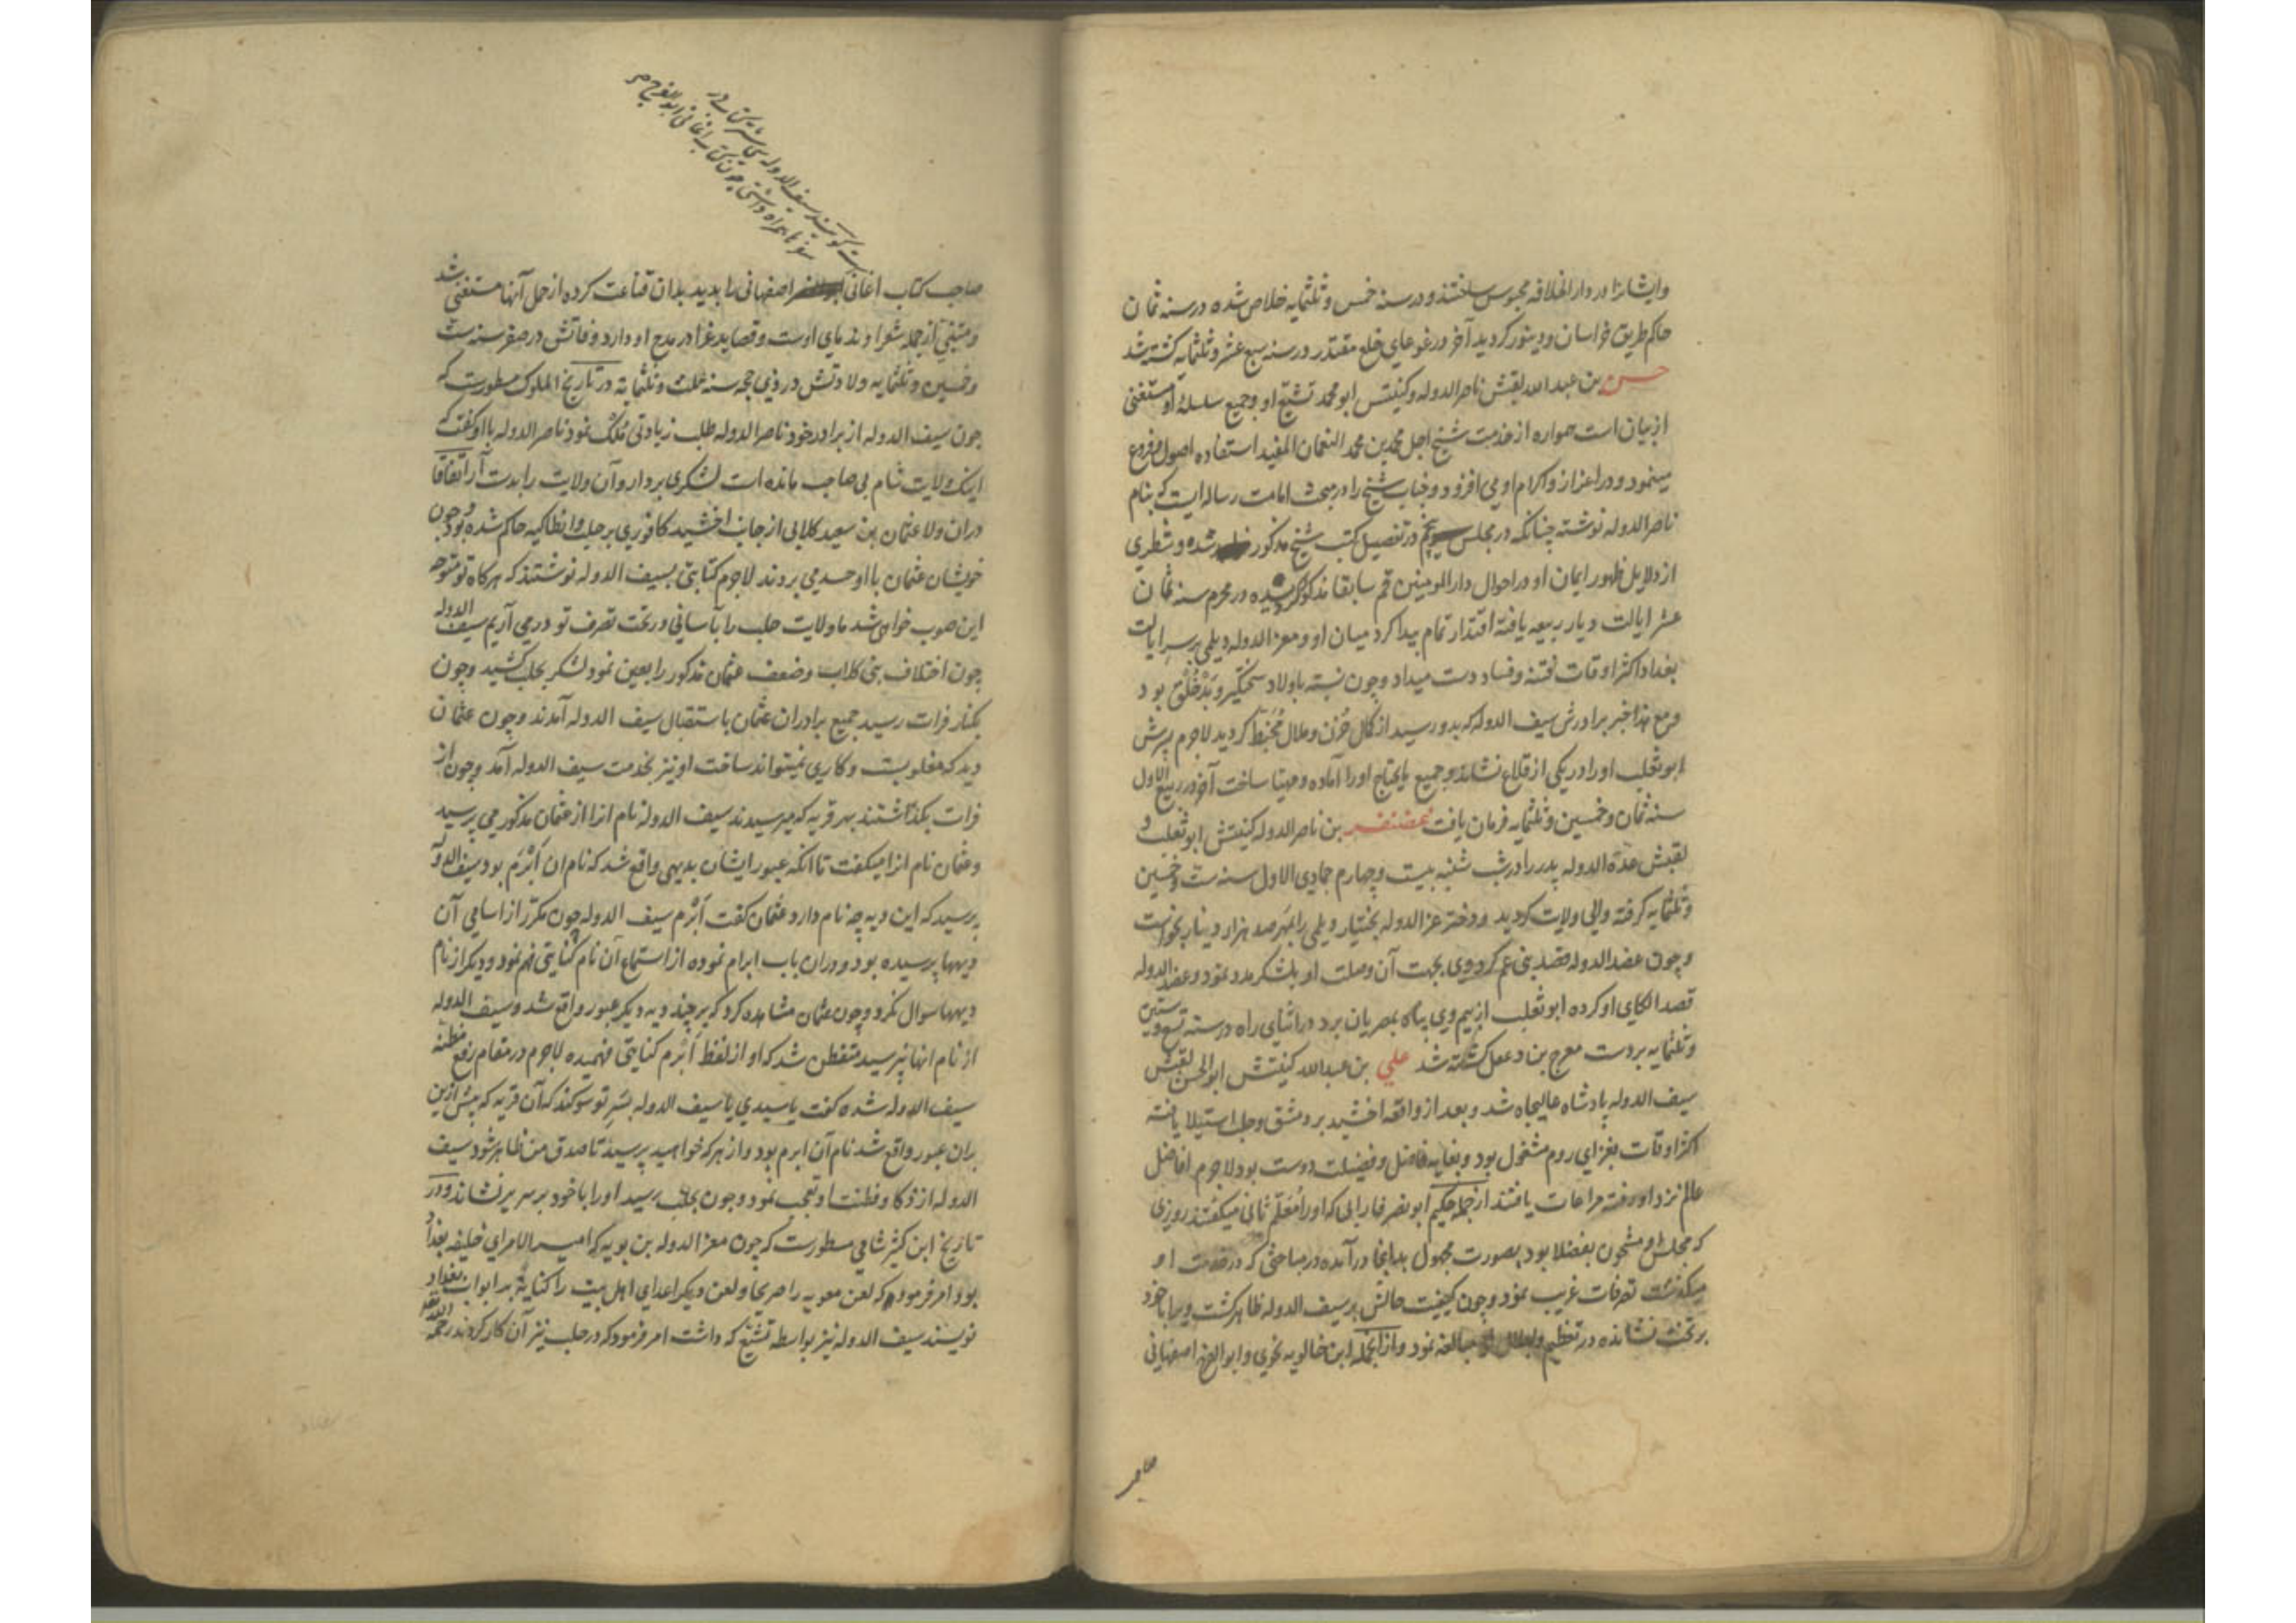 وایشانرا در دار الخلافه محبوس ساختند و در سنه خمس و ثلثمایه خلاص شده در سنه ثمان
حاکم طریق خراسان و دینور کردید آخر در غوغای خلع مقتدر در سنه سبع عشر و ثلثمایه کشته شد
حسن بن عبد الله لقبش ناصر الدوله و کنیتش ابو محمد تشیع او و جمیع سلسله او مستغنی
از بیان است همواره از خدمت شیخ اجل محمد بن محمد النعمان المفید استفاده اصول و فروع
مینمود و در اعزاز و اکرام او می افزود و جناب شیخ را در مبحث امامت رساله ایست که بنام
ناصر الدوله نوشته چنانکه در مجلس پنجم در تفصیل کتب شیخ مذکور شده و شطری
از دلایل ظهور ایمان او در احوال دار المومنین قم سابقا مذکور کردیده در محرم سنه ثمان
عشر ایالت دیار ربیعه یافته اقتدار تمام پیدا کرد میان او و معز الدوله دیلمی بر سر ایالت
بغداد اکثر اوقات فتنه و فساد دست میداد و چون نسبت باولاد سختگیر و بدخلق بود
و مع هذا خبر برادرش سیف الدوله که بدو رسید از کمال حزن و ملال مخبط کردید لاجرم پسرش
ابو تغلب او را در یکی از قلاع نشاند و جمیع مایحتاج او را آماده و مهیا ساخت آخر در ربیع الاول
سنه ثمان و خمسین و ثلثمایه فرمان یافت غضنفر بن ناصر الدوله کنیتش ابو تغلب و
لقبش عدة الدوله پدر را در شب شنبه بیست و چهارم جمادی الاول سنه ست و خمسین
و ثلثمایه کرفته والی ولایت کردید و دختر عز الدوله بختیار دیلمی را بمهر صد هزار دینار بخواست
و چون عضد الدوله قصد بنی عم کرد وی بجهت آن وصلت او بلشکر مدد نمود و عضد الدوله
قصد الکای او کرده ابو تغلب از بیم وی پناه بمصریان برد در اثنای راه در سنه تسع و ستین
و ثلثمایه بر دست مفرج بن دغفل کشته شد علی بن عبد الله کنیتش ابو الحسن لقبش
سیف الدوله پادشاه عالیجاه شد و بعد از واقعه اخشید بر دمشق و حلب استیلا یافته
اکثر اوقات بغزای روم مشغول بود و بغایه فاضل و فضیلت دوست بود لاجرم افاضل
عالم نزد او رفته مراعات یافتند از جمله حکیم ابو نصر فارابی که او را معلم ثانی میکفتند روزی
که مجلس او مشحون بفضلا بود بصورت مجهول بدانجا درآمده در مباحثی که در خدمت او
میکذشت تصرفات غریب نمود و چون کیفیت حالش بر سیف الدوله ظاهر کشت ویرا با خود
بر تخت نشانده در تعظیم و اجلال او مبالغه نمود و از انجمله ابن خالویه نحوی و ابو الفرج اصفهانی
صاحب
صاحب کتاب اغانی اصفهانی را بدید بدان قناعت کرده از حمل آنها مستغنی شد
و متنبی از جمله شعرا و ندمای اوست و قصاید غرا در مدح او دارد وفاتش در صفر سنه ست
و خمسین و ثلثمایه ولادتش در ذی حجه سنه ثلث و ثلثمایة در تاریخ الملوک مسطورست که
چون سیف الدوله از برادر خود ناصر الدوله طلب زیادتی ملک نمود ناصر الدوله با او کفت که
اینک ولایت شام بی صاحب مانده است لشکری بردار و آن ولایت را بدست آر اتفاقا
در ان ولا عثمان بن سعید کلابی از جانب اخشید کافوری بر حلب و انطاکیه حاکم شده بود و چون
خویشان عثمان با او حسد می بردند لاجرم کتابتی بسیف الدوله نوشتند که هرکاه تو متوجه
این صوب خواهی شد ما ولایت حلب را بآسانی در تحت تصرف تو در می آریم سیف الدوله
چون اختلاف بنی کلاب و ضعف عثمان مذکور را بعین نمود لشکر بحلب کشید و چون
بکنار فرات رسید جمیع برادران عثمان باستقبال سیف الدوله آمدند و چون عثمان
دید که مغلوبست و کاری نمیتواند ساخت او نیز بخدمت سیف الدوله آمد و چون از
فرات بکذاشتند بهر قریه که میرسیدند سیف الدوله نام انرا از عثمان مذکور می پرسید
و عثمان نام انرا میکفت تا انکه عبور ایشان بدیهی واقع شد که نام ان ابرم بود سیف الدوله
پرسید که این دیه چه نام دارد عثمان کفت ابرم سیف الدوله چون مکرر از اسامی آن
دیهها پرسیده بود و دران باب ابرام نموده از استماع آن نام کنایتی فهم نمود و دیکر از نام
دیهها سوال نکرد و چون عثمان مشاهده کرد که بر چند دیه دیکر عبور واقع شد و سیف الدوله
از نام انها نپرسید متفطن شد که او از لفظ ابرم کنایتی فهمیده لاجرم در مقام رفع مظنه
سیف الدوله شده کفت یا سیدی یا سیف الدوله بسر تو سوکند که آن قریه که پیش ازین
بران عبور واقع شد نام آن ابرم بود و از هر که خواهید پرسید تا صدق من ظاهر شود سیف
الدوله از ذکا و فطنت او تعجب نمود و چون بحلب رسید او را با خود بر سریر نشاند و در
تاریخ ابن کثیر شامی مسطورست که چون معز الدوله بن بویه که امیر الامرای خلیفه بغداد
بود امر فرمود که لعن معویه را صریحا و لعن دیکر اعدای اهل بیت را کنایة بر ابواب بغداد
نویسند سیف الدوله نیز بواسطه تشیع که داشت امر فرمود که در حلب نیز آن کار کردند رحمه الله